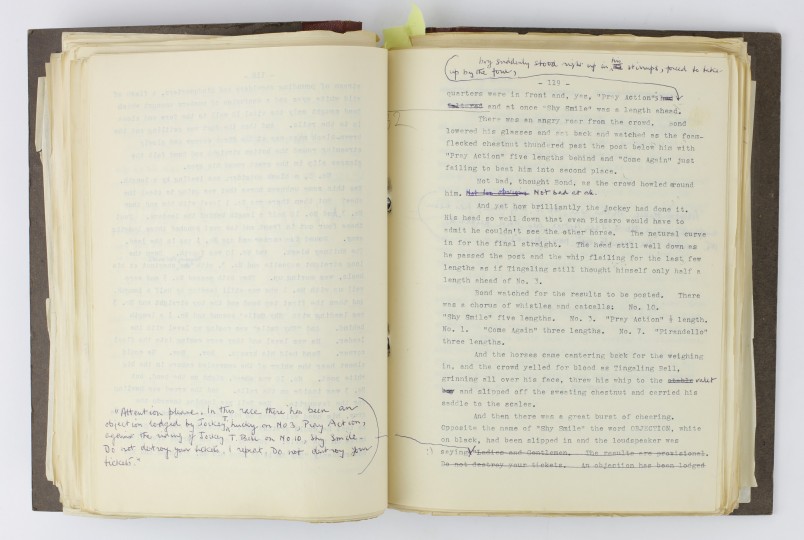 "Attention please. In this race there has been an
objection lodged by Jockey T. Lucky on No 3, Pray Action,
against the riding of Jockey T. Bell on No 10, Shy Smile.
Do not destroy your tickets. I repeat, Do not destroy your
tickets."
suddenly stood right up in his stirrups, forced to take
up by the four,
- 119 -
quarters were in front and, yes, "Pray Action" had
faltered and at once "Shy Smile" was a length ahead.
There was an angry roar from the crowd. Bond
lowered his glasses and sat back and watched as the foam-
flecked chestnut thundered past the post below him with
"Pray Action" five lengths behind and "Come Again" just
failing to beat him into second place.
Not bad, thought Bond, as the crowd howled around
him. Not bad at all.
And yet how brilliantly the jockey had done it.
His head so well down that even Pissaro would have to
admit he couldn't see the other horse. The natural curve
in for the final straight. The head still well down as
he passed the post and the whip flailing for the last few
lengths as if Tingaling still thought himself only half a
length ahead of No. 3.
Bond watched for the results to be posted. There
was a chorus of whistles and catcalls: No. 10.
"Shy Smile" five lengths. No. 3. "Pray Action" ½ length.
No. 1. "Come Again" three lengths. No. 7. "Pirandello"
three lengths.
And the horses came cantering back for the weighing
in, and the crowd yelled for blood as Tingaling Bell,
grinning all over his face, threw his whip to the stable valet
boy and slipped off the sweating chestnut and carried his
saddle to the scales.
And then there was a great burst of cheering.
Opposite the name of "Shy Smile" the word OBJECTION, white
on black, had been slipped in and the loudspeaker was
saying "Ladies and Gentlemen. The results are provisional.
Do not destroy your tickets. An objection has been lodged